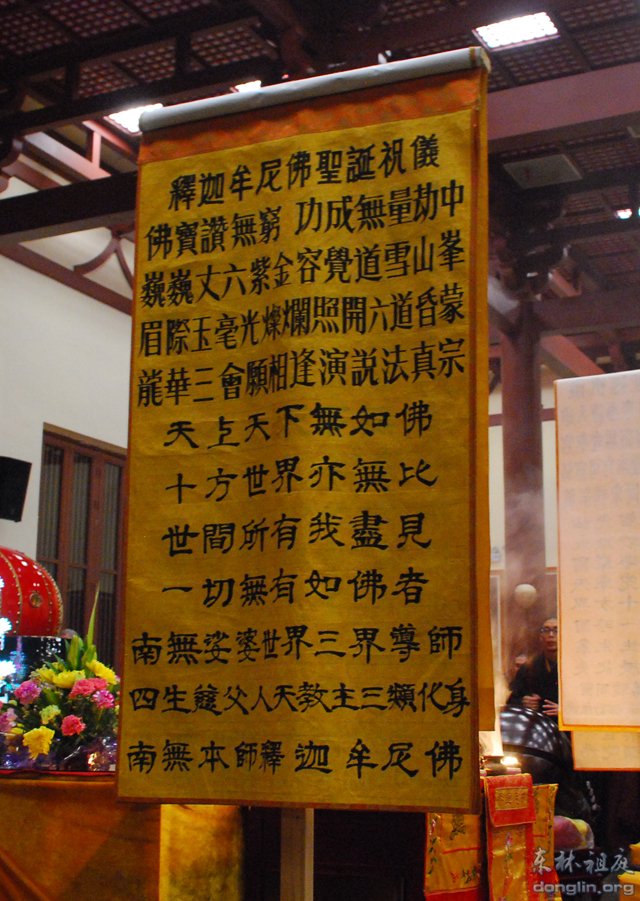 釋迦牟尼佛聖誕祝儀
佛寶讚無窮 功成無量劫中
巍巍丈六紫金容覺道雪山峯
眉際玉毫光燦爛照開六道昏蒙
龍華三會願相逢演說法真宗
天上天下無如佛
十方世界亦無比
世間所有我盡見
一切無有如佛者
南無娑婆世界三界導師
四生慈父人天教主三類化身
南無本師釋迦牟尼佛
东林祖庭
donglin.org